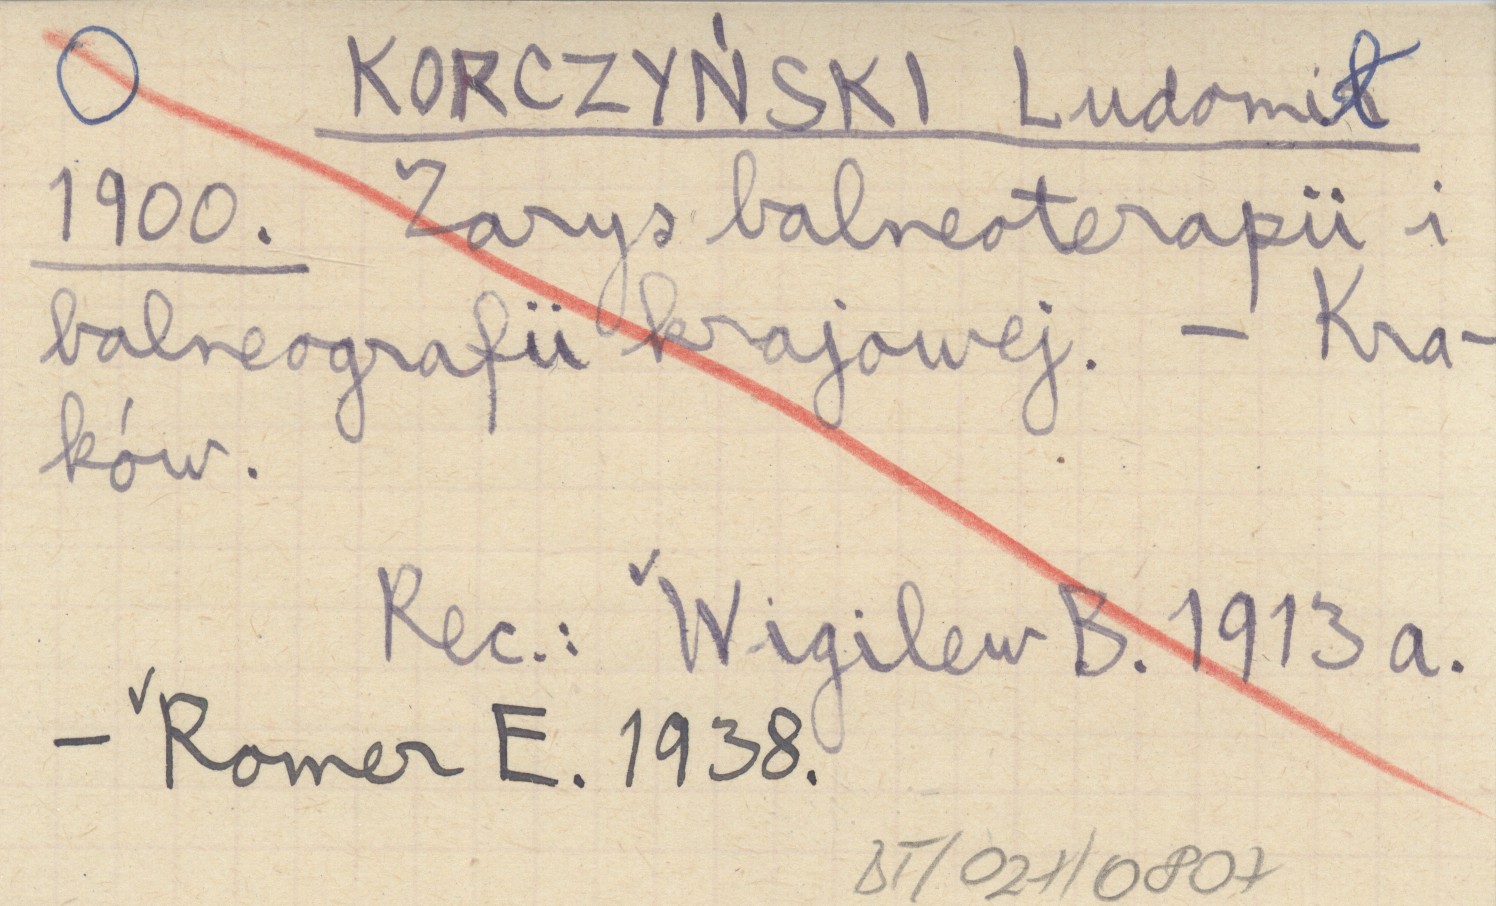 KORCZYŃSKI Ludomił
1900. Zarys balneoterapii i
balneografii krajowej. – Kra-
ków.
Rec.: Wigilew B. 1913 a.
– Romer E. 1938.
BT/021/0807